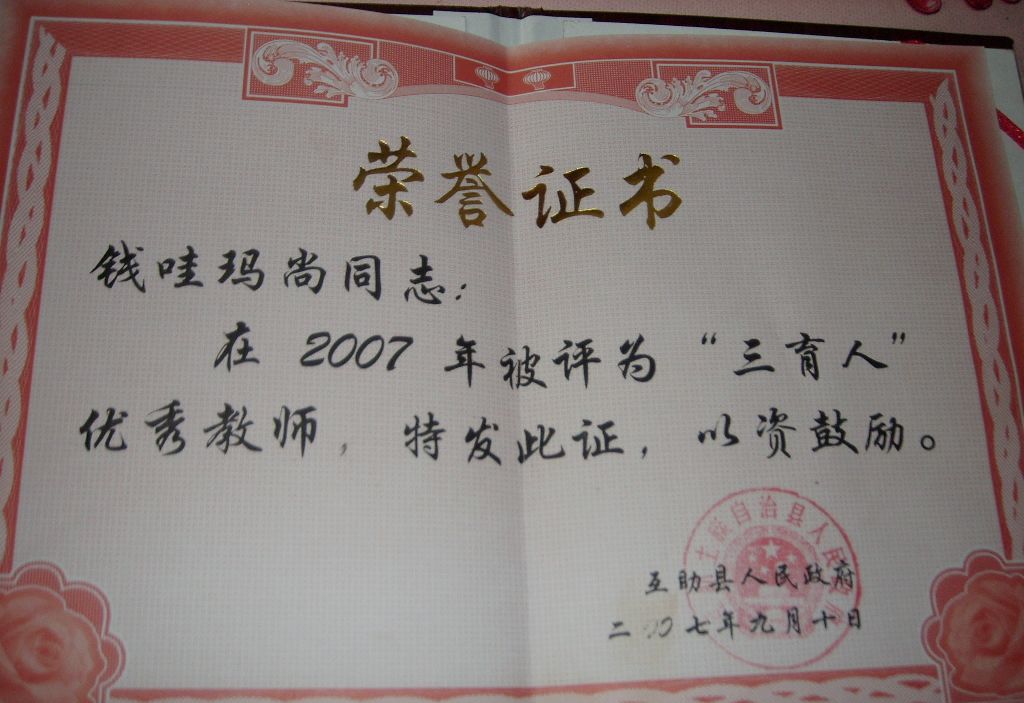 荣誉证书
钱哇玛尚同志：
在 2007 年被评为“三育人”
优秀教师，特发此证，以资鼓励。
土族自治县人民
互助县人民政府
二〇〇七年九月十日